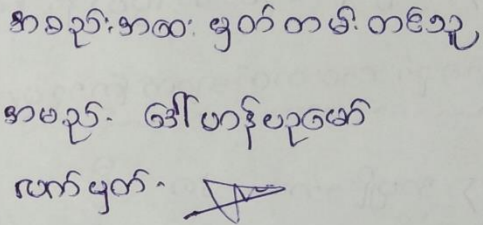 အစည်းအဝေး မှတ်တမ်း တင်သူ
အမည် - ဒေါ်ဟန်ဗဒုမော်
လက်မှတ် -